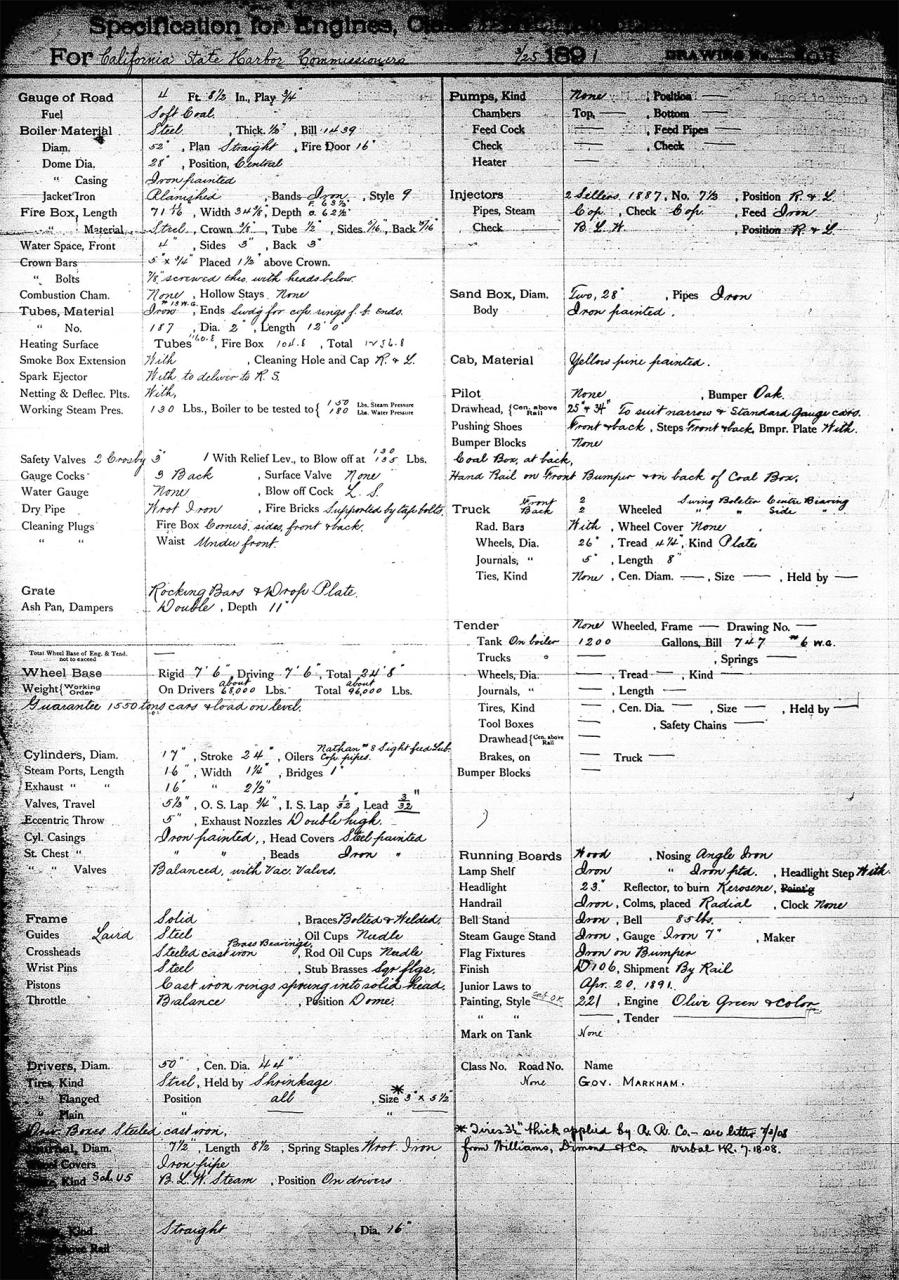 Specification for Engines,
For California State Harbor Commissioners 3/25 1891 DRAWING No.
Gauge of Road 4 Ft. 8½ In., Play ¾"
Fuel Soft Coal.
Boiler Material Steel , Thick. , Bill 1439
Diam. 52" , Plan Straight , Fire Door 16"
Dome Dia. 28" , Position, Central
" Casing Iron painted
Jacket Iron Planished , Bands Iron , Style 9
Fire Box, Length 71 , Width 34⅞, Depth F. 63½" B. 62½"
" Material Steel , Crown , Tube ½" , Sides 5/16, Back 5/16"
Water Space, Front 4" , Sides 3" , Back 3"
Crown Bars 5" x ¾" Placed 1½" above Crown.
" Bolts ⅞" screwed thro. with heads below.
Combustion Cham. None , Hollow Stays None
Tubes, Material Iron #13 W.G. , Ends Swdg for cop. rings f. b. ends.
" No. 187 , Dia. 2" , Length 12' 0"
Heating Surface Tubes , Fire Box 104.8 , Total
Smoke Box Extension With , Cleaning Hole and Cap R. & L.
Spark Ejector With, to deliver to R. S.
Netting & Deflec. Plts. With,
Working Steam Pres. 130 Lbs., Boiler to be tested to { 150 Lbs. Steam Pressure 180 Lbs. Water Pressure
Safety Valves 2 Crosby 3" 1 With Relief Lev., to Blow off at 130 135 Lbs.
Gauge Cocks 3 Back , Surface Valve None
Water Gauge None , Blow off Cock L. S.
Dry Pipe Wrot Iron , Fire Bricks Supported by tap bolts.
Cleaning Plugs Fire Box Corners, sides, front & back.
" " Waist Under front.
Grate Rocking Bars & Drop Plate.
Ash Pan, Dampers Double , Depth 11"
Total Wheel Base of Eng. & Tend. not to exceed —
Wheel Base Rigid 7' 6", Driving 7' 6", Total 24' 8"
Weight { Working Order On Drivers about 68,000 Lbs. Total about 96,000 Lbs.
Guarantee 1550 tons cars & load on level.
Cylinders, Diam. 17" , Stroke 24" , Oilers Nathan #8 Sight feed Lub. Cop. pipes.
Steam Ports, Length 16" , Width 1¼" , Bridges 1"
Exhaust " " 16" " 2½"
Valves, Travel , O. S. Lap ¾", I. S. Lap 1/32", Lead 3/32"
Eccentric Throw 5" , Exhaust Nozzles Double high.
Cyl. Casings Iron painted, , Head Covers Steel painted
St. Chest " " " , Beads Iron "
" " Valves Balanced, with Vac. Valves.
Frame Solid , Braces Bolted & Welded.
Guides Laird Steel , Oil Cups Needle
Crossheads Steeled cast iron Brass Bearings , Rod Oil Cups Needle
Wrist Pins Steel , Stub Brasses Sqr flgs.
Pistons Cast iron rings sprung into solid head.
Throttle Balance , Position Dome.
Drivers, Diam. 50" , Cen. Dia. 44"
Tires, Kind Steel, Held by Shrinkage
" Flanged Position all , Size * 3" x 5½"
" Plain " — " —
Boxes Steeled cast iron,
Journal, Diam. 7½" , Length 8½ , Spring Staples Wrot Iron
Wheel Covers Iron pipe
Kind Sch. US B. L. W. Steam , Position On drivers
Kind. Straight , Dia. 16"
above Rail
Pumps, Kind None , Position —
Chambers Top, — , Bottom —
Feed Cock — , Feed Pipes —
Check — , Check —
Heater —
Injectors 2 Sellers 1887, No. 7½ , Position R. & L.
Pipes, Steam Cop , Check Cop. , Feed Iron
Check B. L. W. , Position R. & L.
Sand Box, Diam. Two, 28" , Pipes Iron
Body Iron painted.
Cab, Material Yellow pine painted.
Pilot None , Bumper Oak.
Drawhead, { Cen. above Rail 25" & 34" To suit narrow & Standard Gauge cars.
Pushing Shoes Front & back , Steps Front & back, Bmpr. Plate With.
Bumper Blocks None
Coal Box, at back,
Hand Rail on Front Bumper & on back of Coal Box.
Truck Front 2 Wheeled Swing Bolster Center Bearing
Back 2 " " Side "
Rad. Bars With , Wheel Cover None
Wheels, Dia. 26" , Tread 4¼", Kind Plate
Journals, " 5" , Length 8"
Ties, Kind None , Cen. Diam. — , Size — , Held by —
Tender None Wheeled, Frame — Drawing No. —
Tank On boiler 1200 Gallons, Bill 747 #6 W.G.
Trucks — , Springs —
Wheels, Dia. — , Tread — , Kind —
Journals, " — , Length —
Tires, Kind — , Cen. Dia. — , Size — , Held by —
Tool Boxes — , Safety Chains —
Drawhead { Cen. above Rail —
Brakes, on — Truck —
Bumper Blocks —
Running Boards Wood , Nosing Angle Iron
Lamp Shelf Iron " Iron ptd. , Headlight Step With.
Headlight 23" Reflector, to burn Kerosene, Paint'g
Handrail Iron , Colms, placed Radial , Clock None
Bell Stand Iron , Bell 85 lbs.
Steam Gauge Stand Iron , Gauge Iron 7" , Maker
Flag Fixtures Iron on Bumper
Finish D106, Shipment By Rail
Junior Laws to Apr. 20, 1891.
Painting, Style 221 , Engine Olive Green & color
" " — , Tender —
Mark on Tank None
Class No. Road No. Name
None GOV. MARKHAM.
* Tires 3½" thick applied by R. R. Co. – see letter 7/2/08
from Williams, Dimond & Co Verbal HR. 7.18.08.